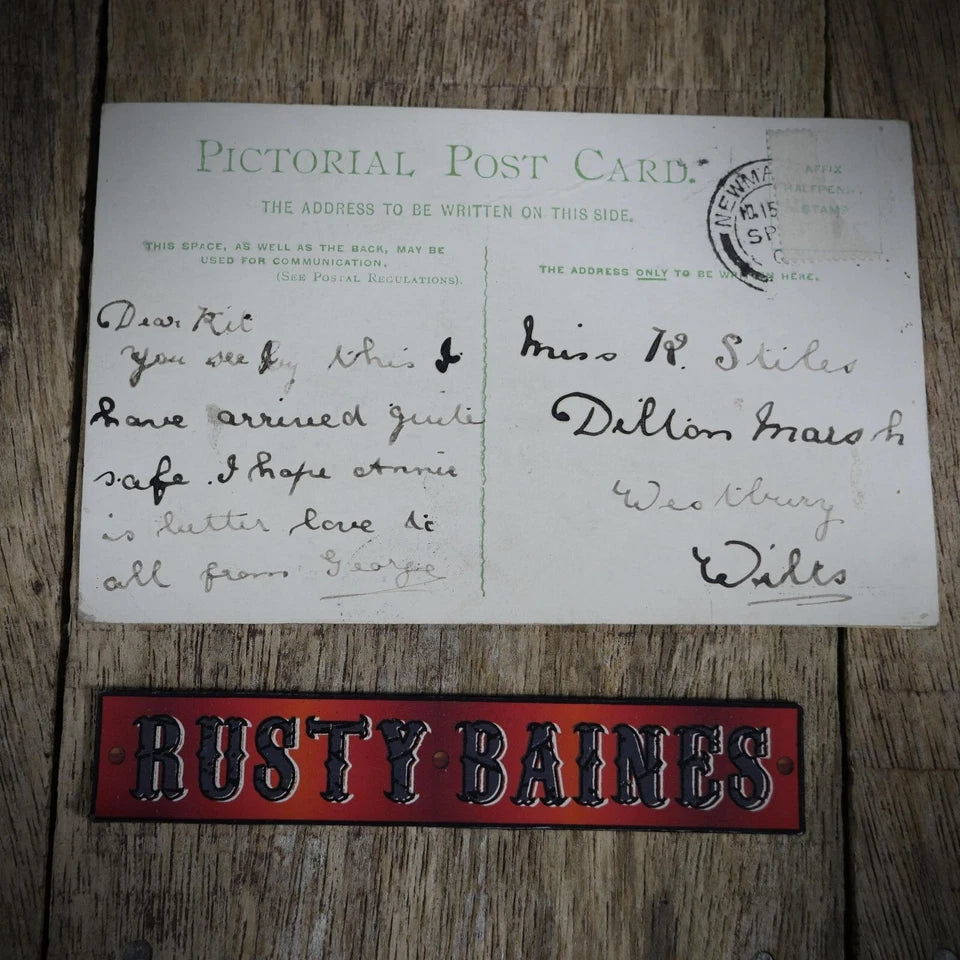 PICTORIAL POST CARD.
THE ADDRESS TO BE WRITTEN ON THIS SIDE.
THIS SPACE, AS WELL AS THE BACK, MAY BE
USED FOR COMMUNICATION.
(SEE POSTAL REGULATIONS).
Dear Kit
you see by this I
have arrived quite
safe. I hope Annie
is better love to
all from Georgie
AFFIX
HALFPENNY
STAMP
NEWMA
SP
THE ADDRESS ONLY TO BE WRITTEN HERE.
Miss K. Stiles
Dilton Marsh
Westbury
Wilts
RUSTY BAINES